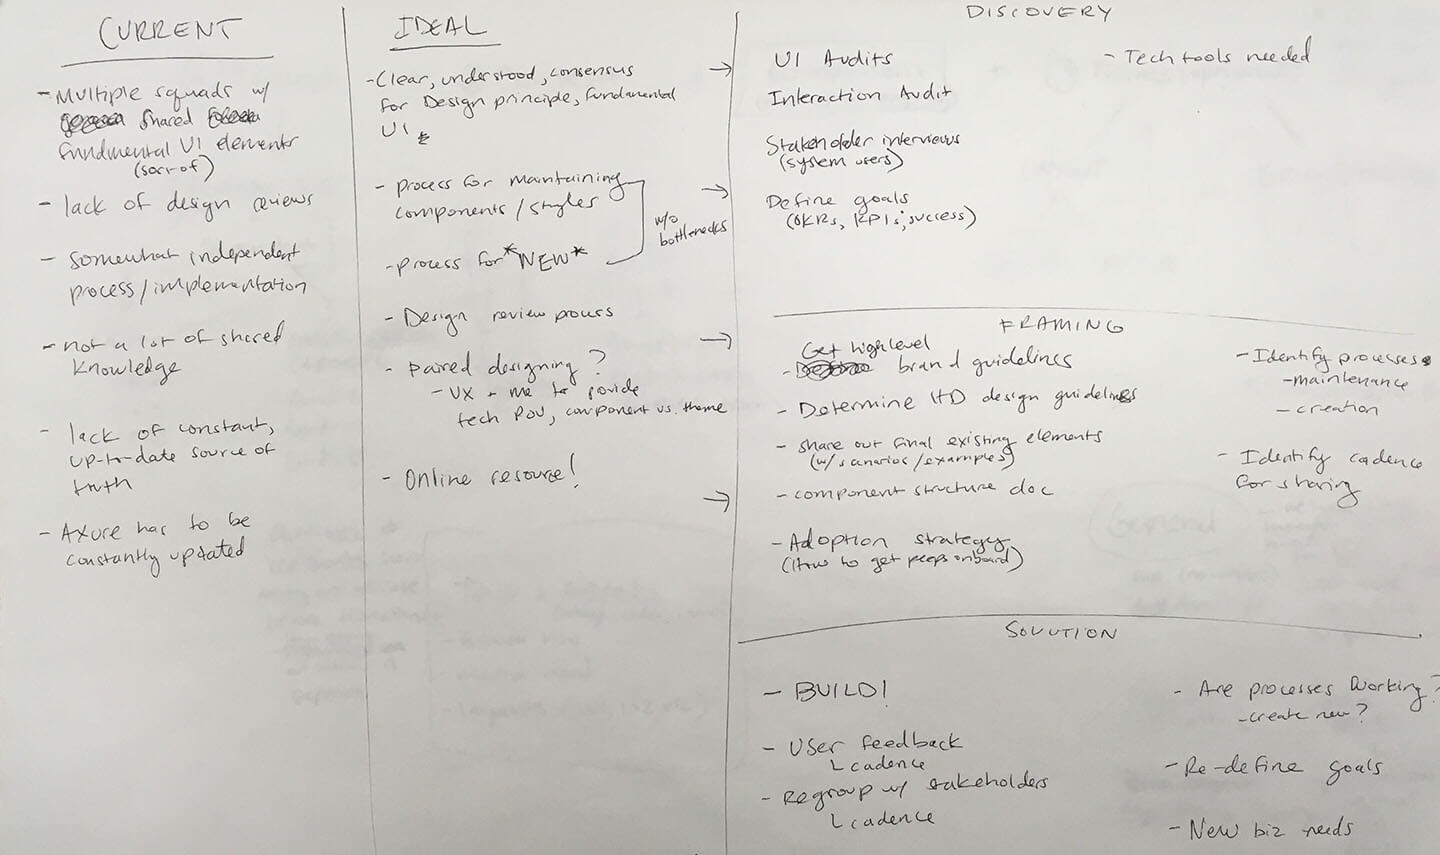 CURRENT
- Multiple squads w/
shared
fundmental UI elements
(sort of)
- lack of design reviews
- somewhat independent
process/implementation
- not a lot of shared
knowledge
- lack of constant,
up-to-date source of
truth
- Axure has to be
constantly updated
IDEAL
- Clear, understood, consensus
for Design principle, fundamental
UI
- process for maintaining
components/styles
- process for *NEW*
w/o
bottlenecks
- Design review process
- paired designing?
- UX + me to provide
tech POV, component vs. theme
- Online resource!
DISCOVERY
UI Audits
Interaction Audit
Stakeholder interviews
(system users)
Define goals
(OKRs, KPIs; success)
- Tech tools needed
FRAMING
Get high level
- brand guidelines
- Determine HD design guidelines
- share out final existing elements
(w/ scenarios/examples)
- component structure doc
- Adoption strategy
(How to get peeps onboard)
- Identify processes
- maintenance
- creation
- Identify cadence
for sharing
SOLUTION
- BUILD!
- User feedback
L cadence
- Regroup w/ stakeholders
L cadence
- Are processes working?
- create new?
- Re-define goals
- New biz needs